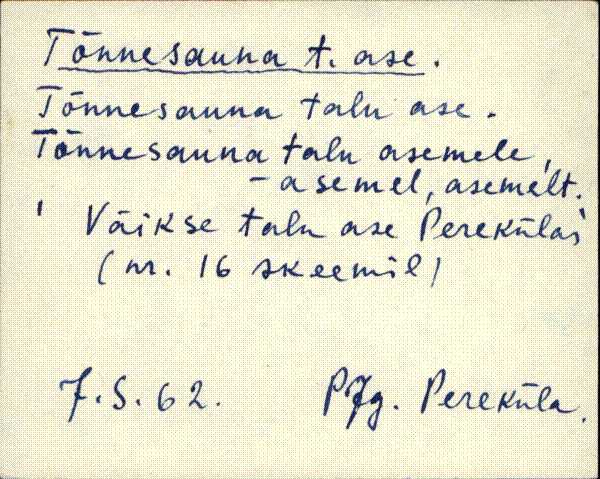 Tõnnesauna t. ase.
Tõnnesauna talu ase.
Tõnnesauna talu asemele,
- asemel, asemelt.
' Väikse talu ase Perekülas
(nr. 16 skeemil)
7.S.62. PJg. Pereküla.